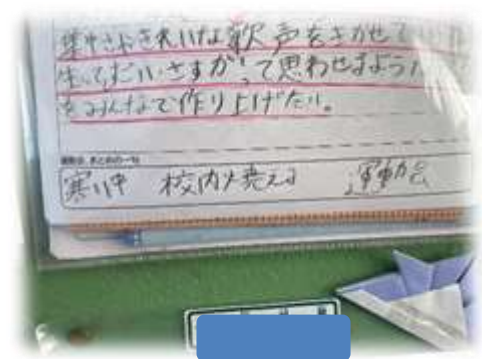 集中させきれいな歌声をきかせて
生ってだいさすがって思わせるよう
をみんなで作り上げたい。
寒い中 校内火燃える 運動会